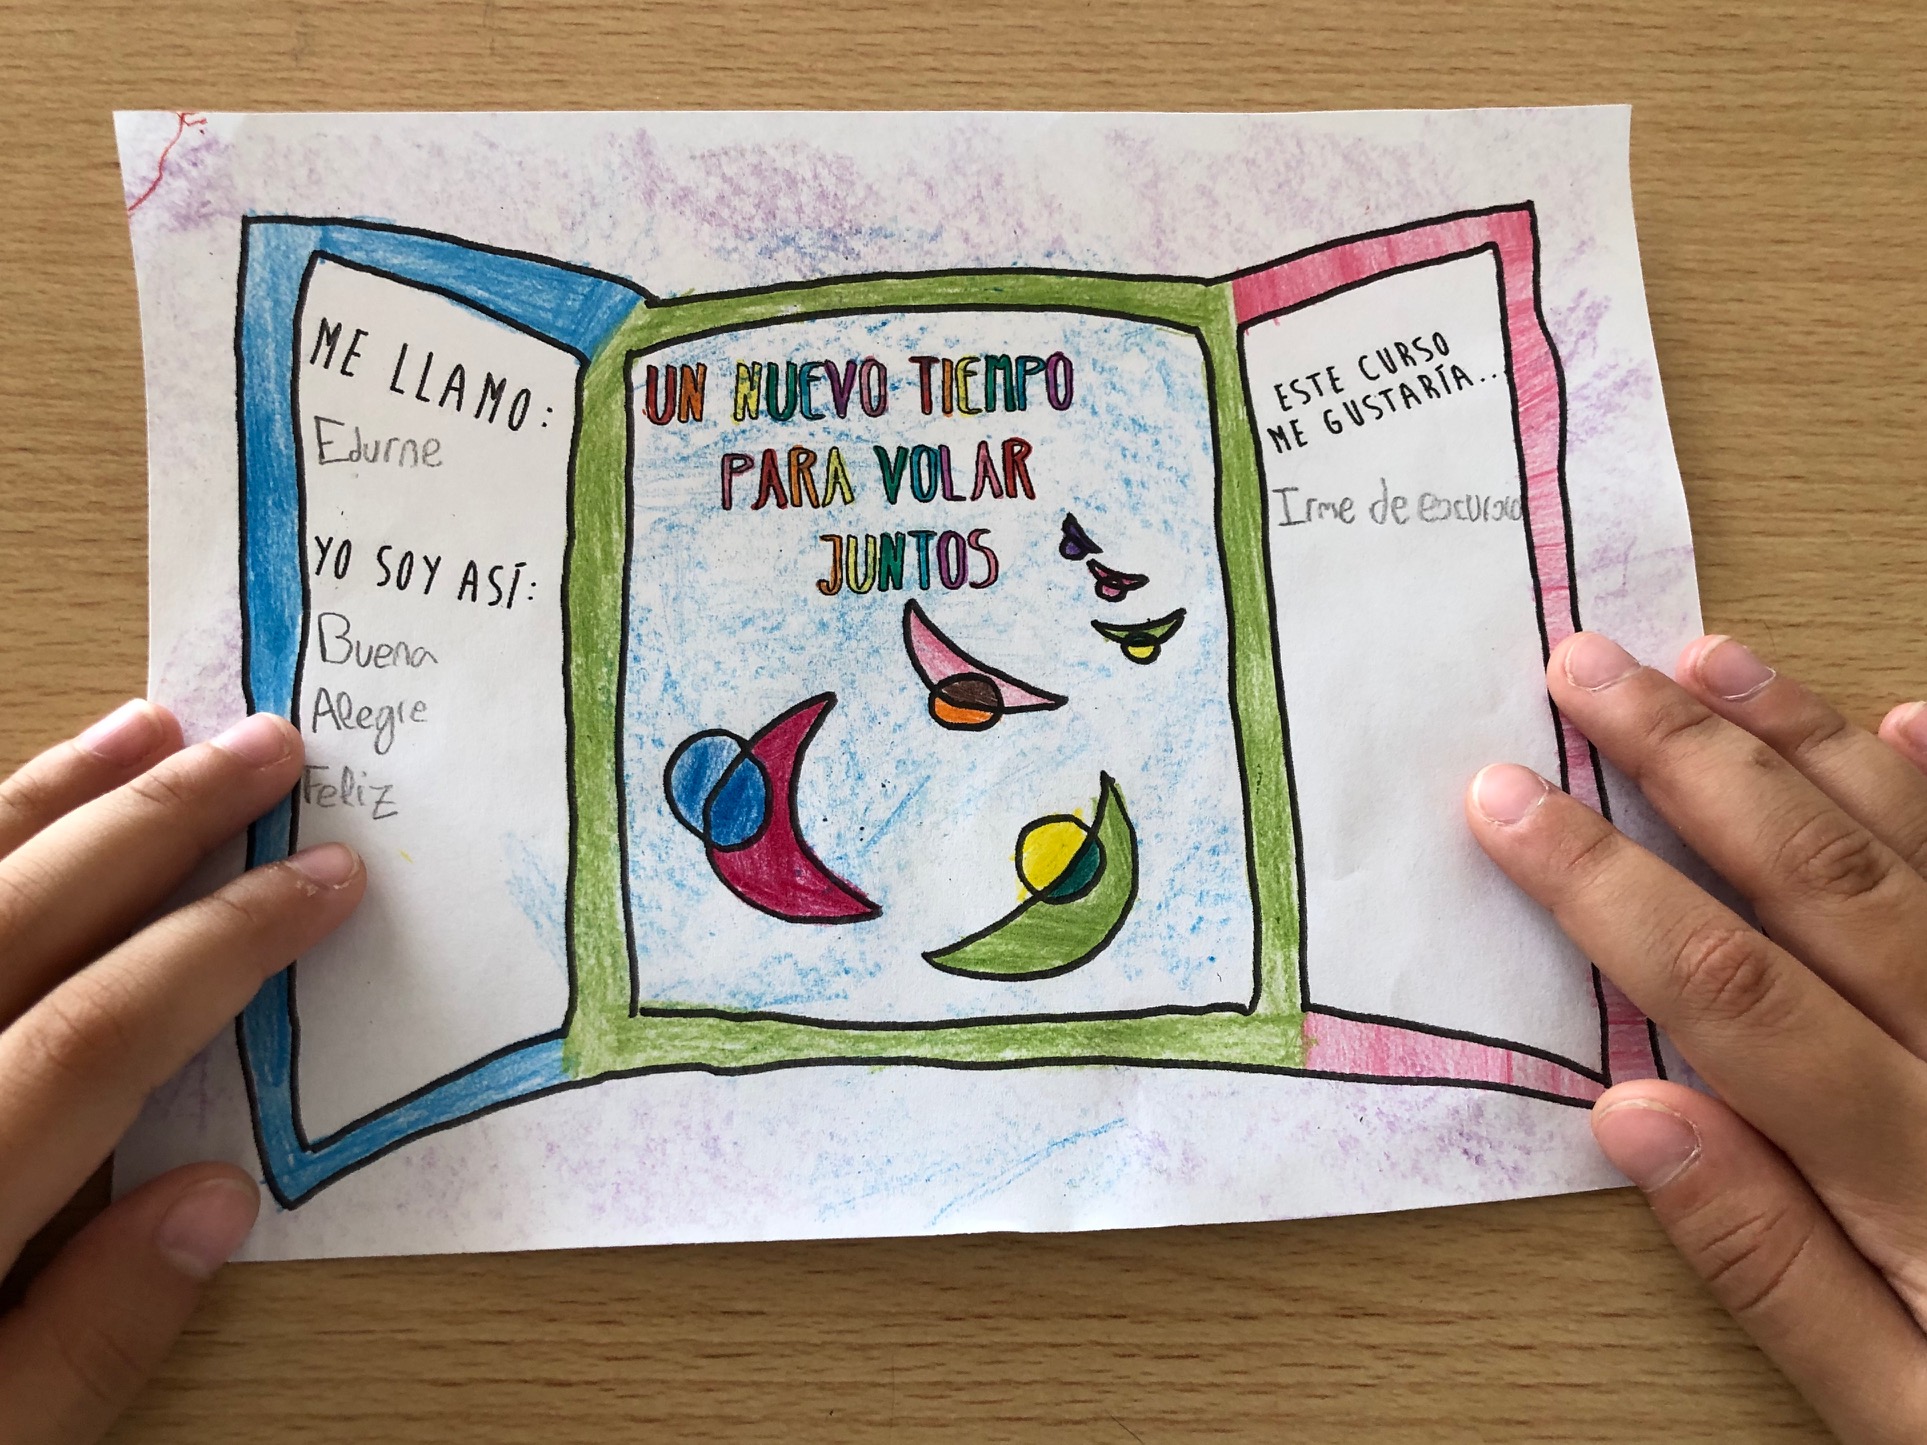 ME LLAMO:
Edurne
YO SOY ASÍ:
Buena
Alegre
Feliz
UN NUEVO TIEMPO
PARA VOLAR
JUNTOS
ESTE CURSO
ME GUSTARÍA...
Irme de